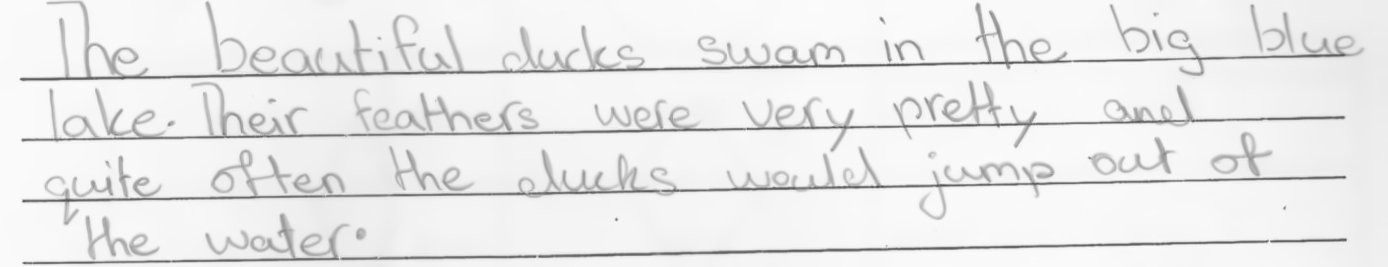 The beautiful ducks swam in the big blue
lake. Their feathers were very pretty and
quite often the ducks would jump out of
the water.